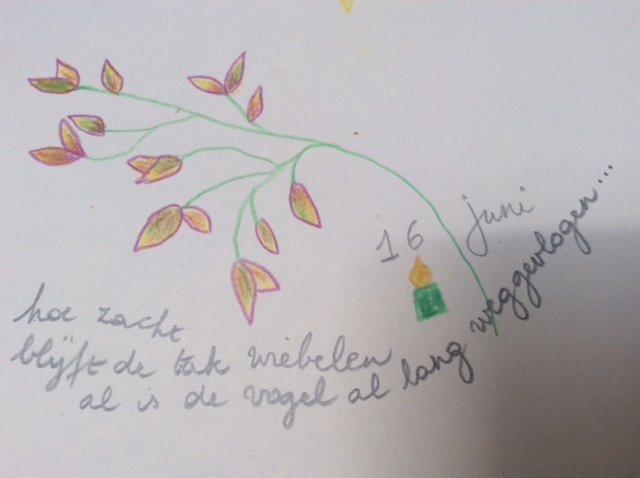 16 juni
hoe zacht
blijft de tak wiebelen
al is de vogel al lang weggevlogen...